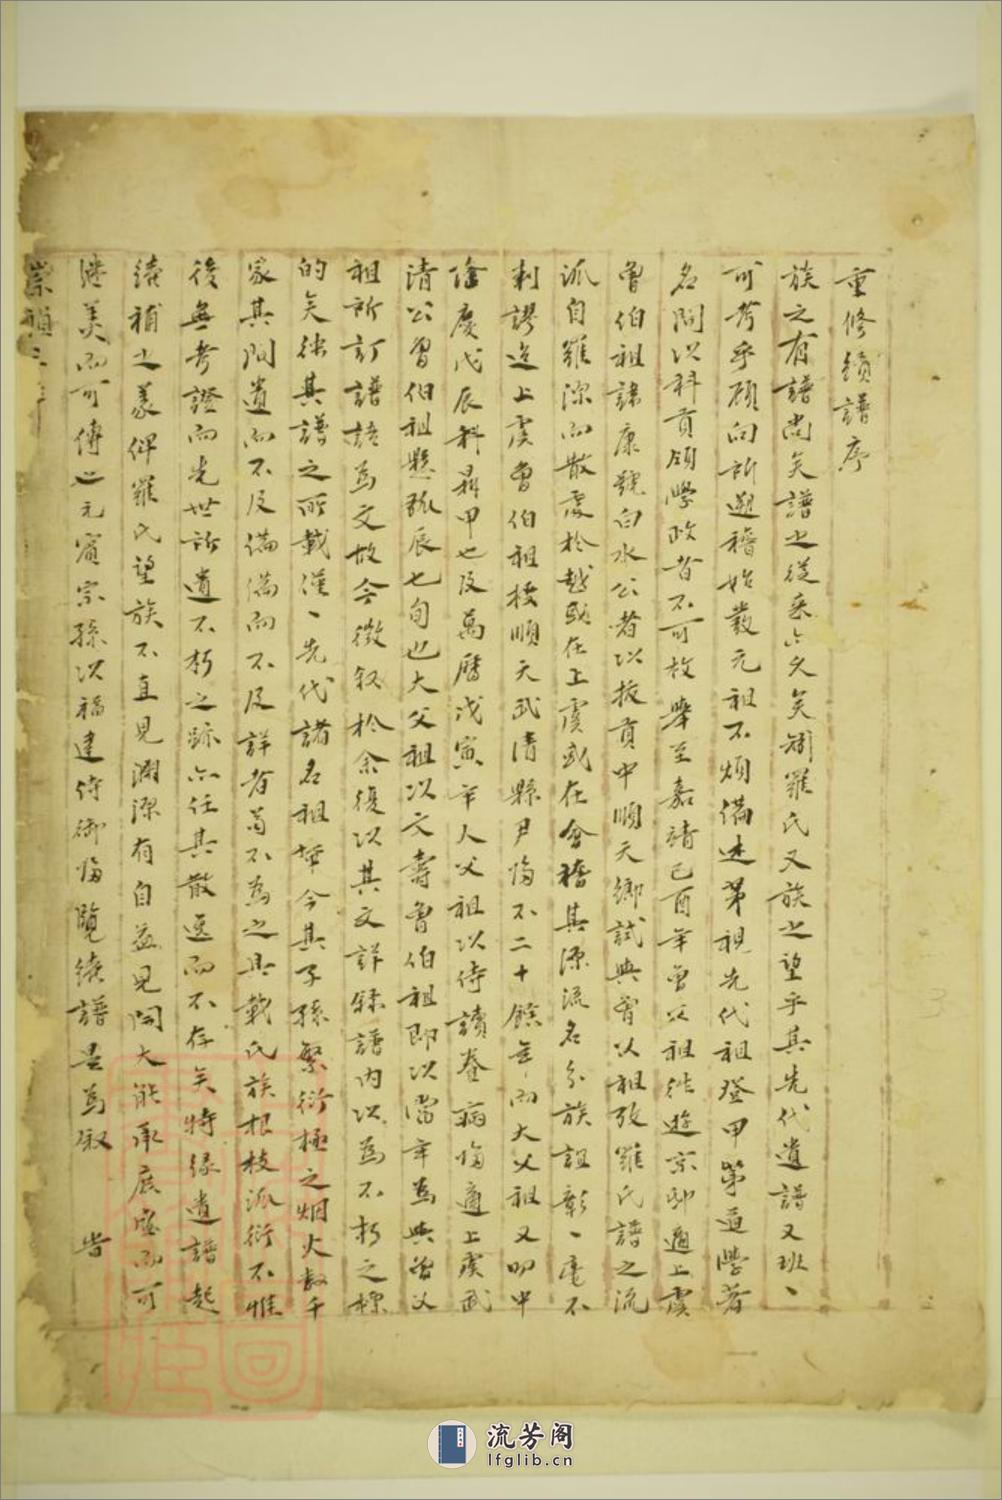 重修續譜序
族之有譜尚矣譜之從來亦久矣矧羅氏又族之望乎其先代遺譜又班丶
可考乎顧向所遡稽始裁元祖不煩備述第視先代祖登甲第道學著
名聞以科貢領學政者不可枚舉至嘉靖己酉年曾父祖往遊京邸適上虞
曾伯祖諱康號白水公者以拔貢中順天鄉試與曾父祖攷羅氏譜之流
派自羅源而散處於越或在上虞或在會稽其源流名分族誼彰丶毫不
刺謬迄上虞曾伯祖授順天武清縣尹歸不二十餘年而大父祖又叨中
隆慶戊辰科鼎甲也及萬曆戊寅年大父祖以侍讀養病歸適上虞武
清公曾伯祖懸弧辰七旬也大父祖以文壽曾伯祖即以當年為與曾父
祖所訂譜語為文故今徵叙於余復以其文詳錄譜內以為不朽之標
的矣独其譜之所載僅丶先代諸名祖耳今其子孫繁衍極之烟火数千
家其間遺而不及備備而不及詳者苟不為之具載氏族根枝派衍不惟
後無考證而先世所遺不朽之跡亦任其散逸而不存矣特緣遺譜起
續補之義俾羅氏望族不直見淵源有自益見聞大能承厎盛而可
継美而可傳也元賓宗孫以福建侍御歸覽續譜是為叙 峕
崇禎三年
流芳阁
lfglib.cn